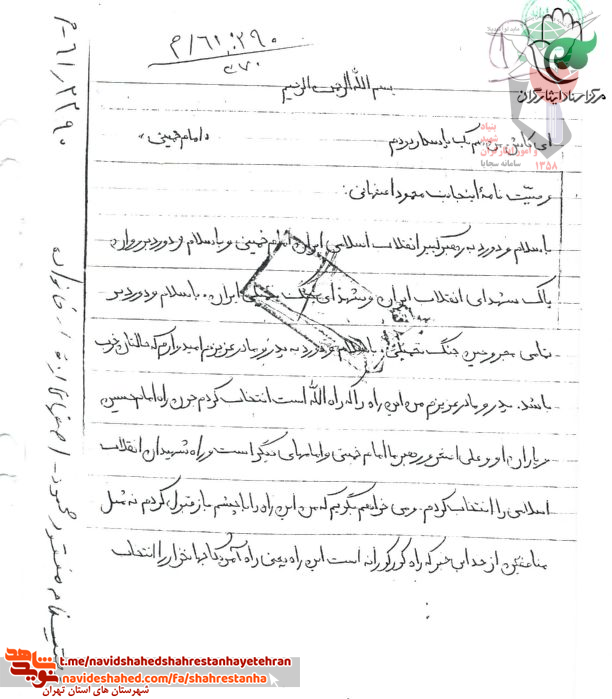 ۲۹۰:/۶۱/م
م-۶۱/۲۳۹۰
بسم الله الرحمن الرحیم
مرکز اسناد ایثارگران
بنیاد
شهید
و امور ایثارگران
سامانه سجایا
۱۳۵۸
ای کاش من هم یک پاسدار بودم «امام خمینی»
وصیت نامه اینجانب محمود اصفهانی:
با سلام و درود به رهبر کبیر انقلاب اسلامی ایران امام خمینی و با سلام و درود بر روان
پاک شهدای انقلاب ایران و شهدای جنگ تحمیلی ایران. با سلام و درود بر
تمامی مجروحین جنگ تحمیلی با سلام و درود به پدر و مادر عزیزم امیدوارم که حالتان خوب
باشد. پدر و مادر عزیزم من این راه را که راه الله است انتخاب کردم چون راه امام حسین
و یاران او و علی اصغر و رهبر ما امام خمینی و امامهای دیگر است و راه شهیدان انقلاب
اسلامی را انتخاب کردم. و می خواهم بگویم که من این راه را با چشم باز قبول کردم نه مثل
منافقین از خدا بی خبر که راه کورکورانه است این راه یعنی راه آمریکا جهانخوار را انتخاب
وصیتنامه منصور محمود-اصفهانی
شاهد
نوید
t.me/navidshahedshahrestanhayetehran
navideshahed.com/fa/shahrestanha
شهرستان های استان تهران